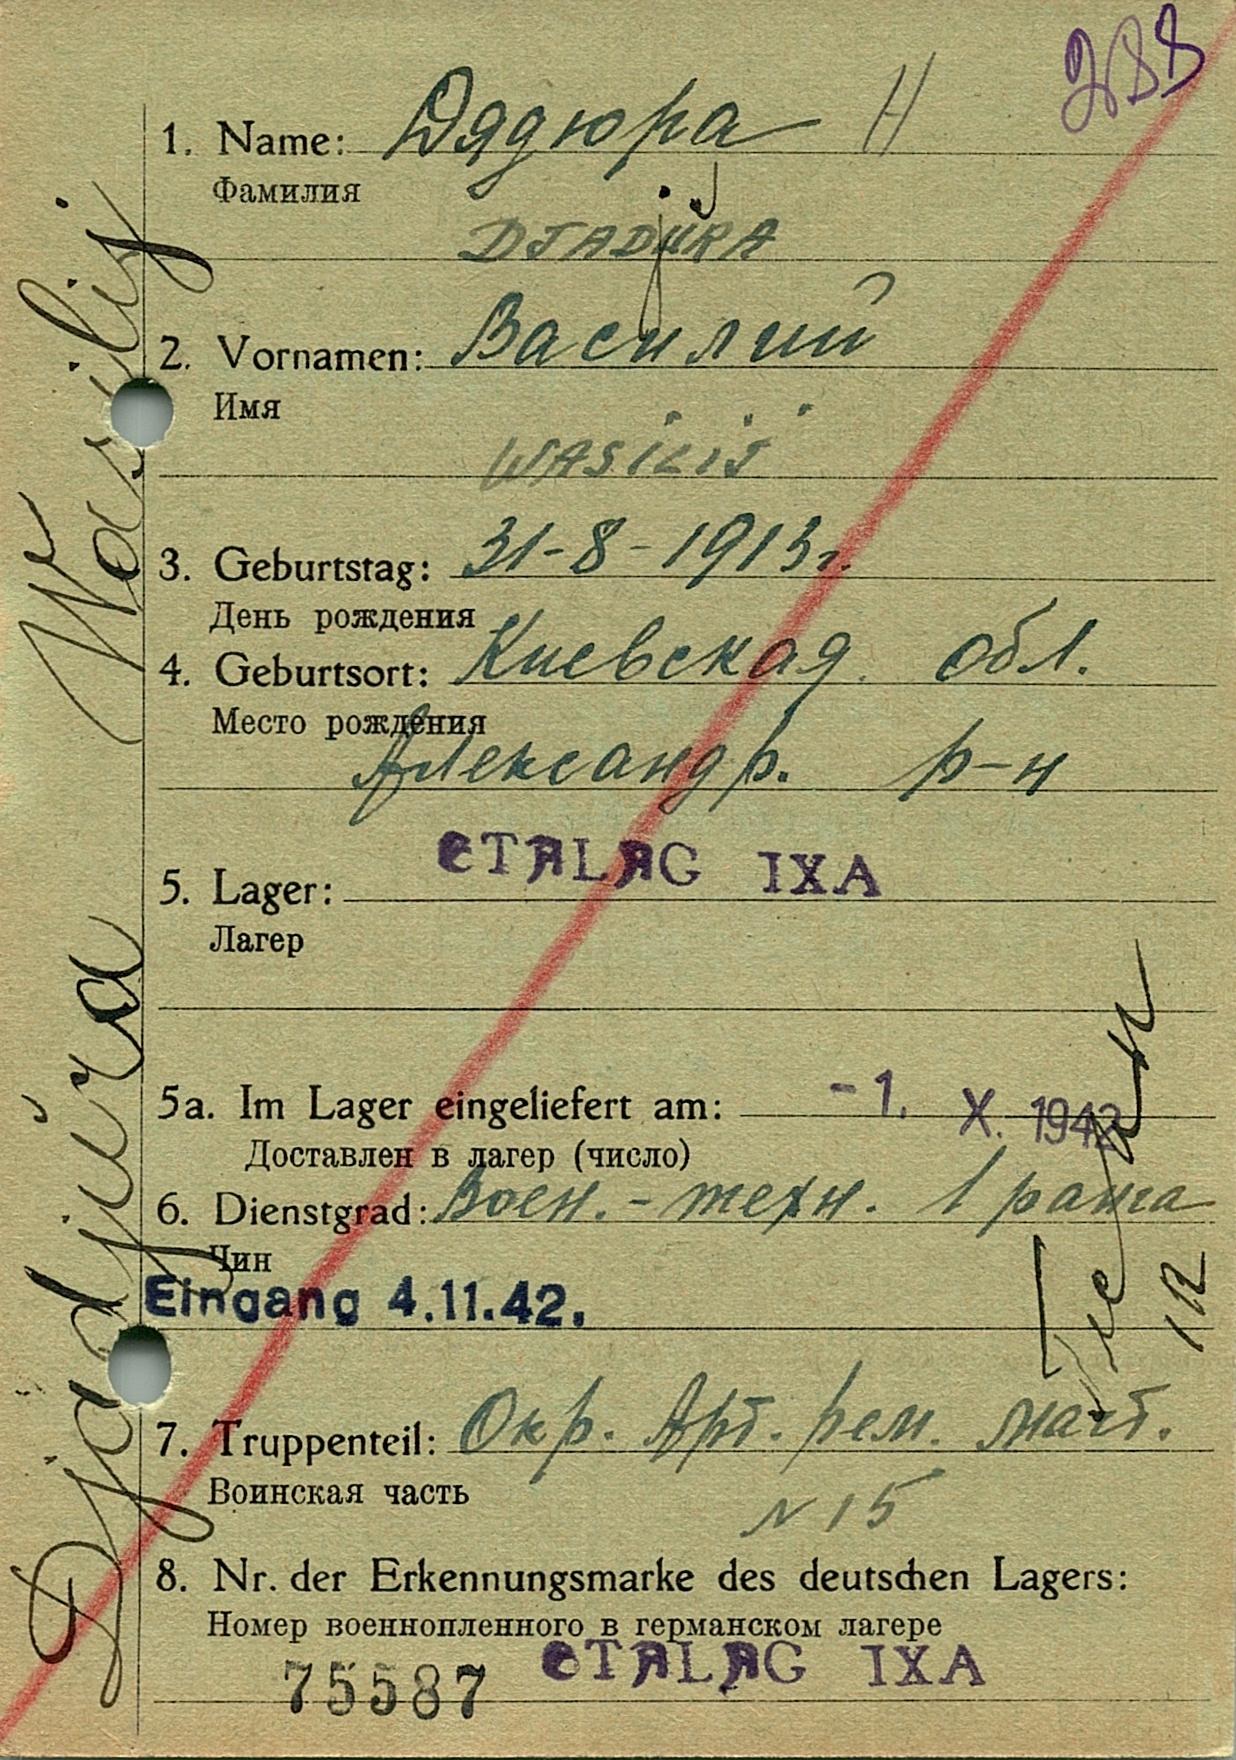 288
1. Name: Дядюра Н
Фамилия
DJADJURA
2. Vornamen: Василий
Имя
WASILIJ
3. Geburtstag: 31-8-1913г.
День рождения
4. Geburtsort: Киевская обл.
Место рождения
Александр. р-н
5. Lager: STALAG IXA
Лагер
5a. Im Lager eingeliefert am: -1. X. 1942
Доставлен в лагер (число)
6. Dienstgrad: Воен.-техн. 1 ранга
Чин
Eingang 4.11.42.
7. Truppenteil: Окр. Арт. рем. маст.
Воинская часть
N 15
8. Nr. der Erkennungsmarke des deutschen Lagers:
Номер военнопленного в германском лагере
75587 STALAG IXA
Djadjura Wasilij